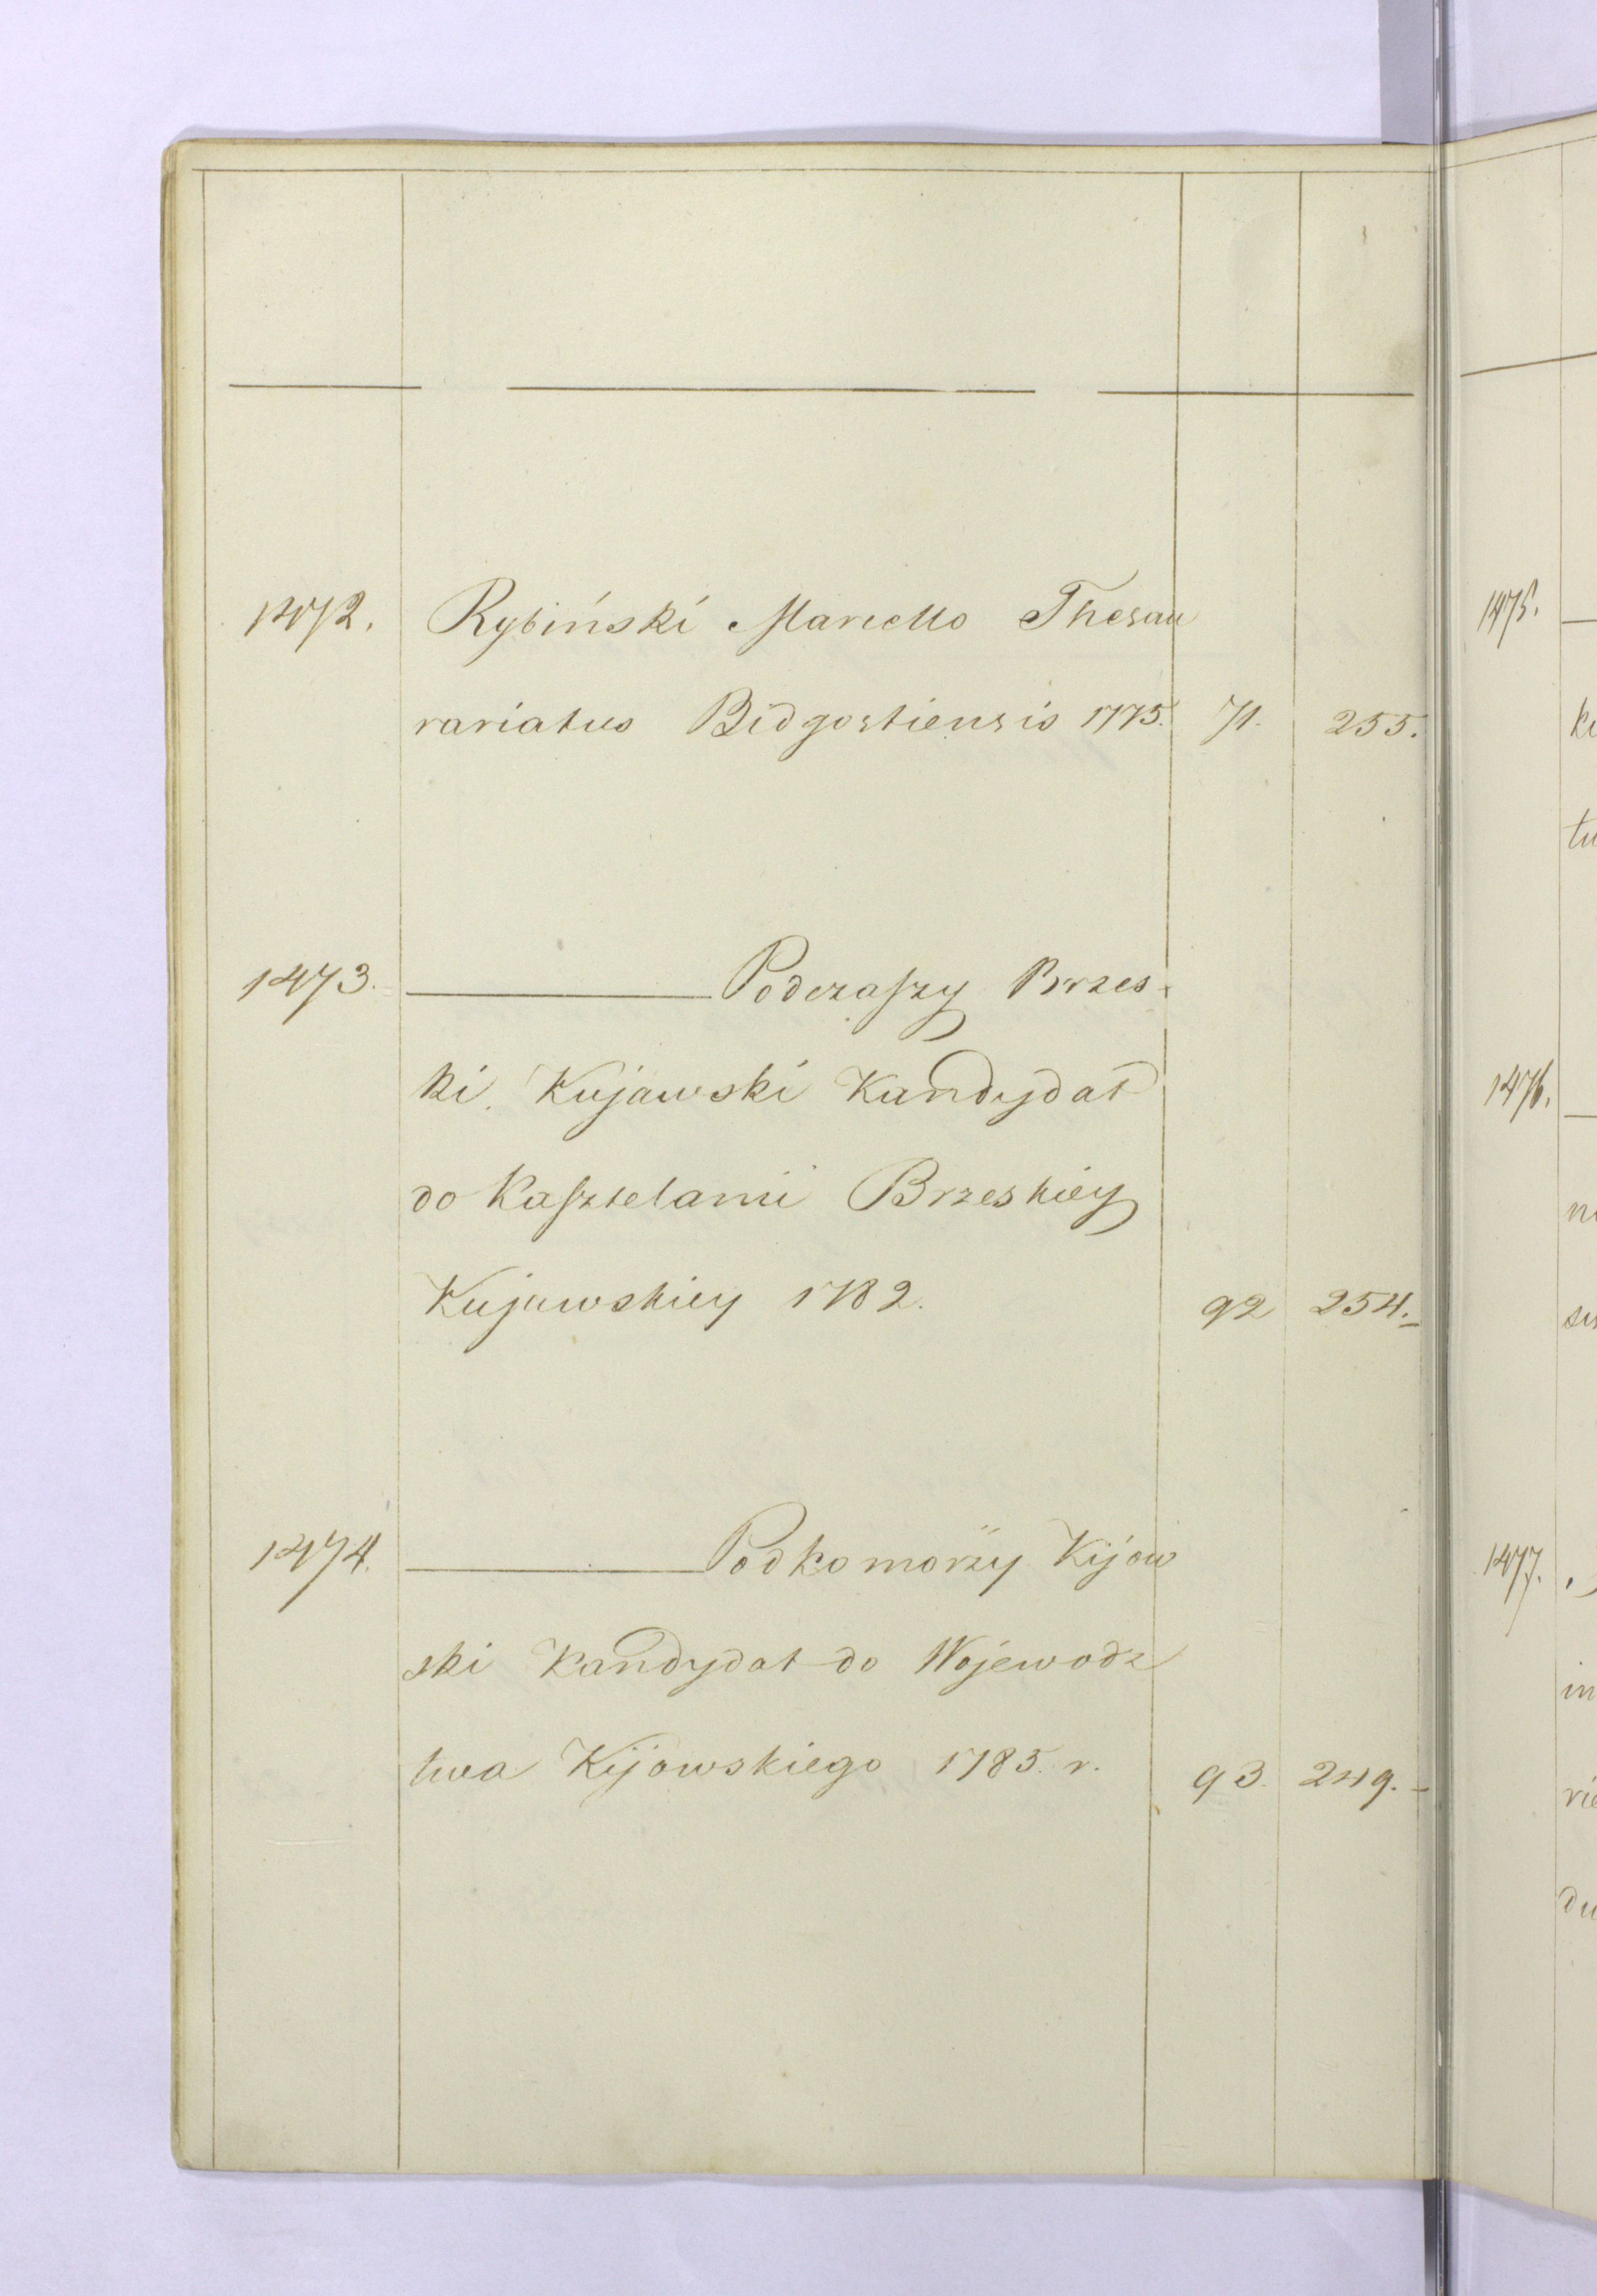 1472. Rybiński Marcello Thesau
rariatus Bidgostiensis 1775. 71. 255.
1473. Podczaſzy Brzes-
ki Kujawski Kandydat
do Kaſztelanii Brzeskiey
Kujawskiey 1782. 92 254.
1474. Podkomorży Kijow
ski Kandydat do Wojewodz
twa Kijowskiego 1785. r. 93. 249.
1475.
tu
1476.
1477.
in
du